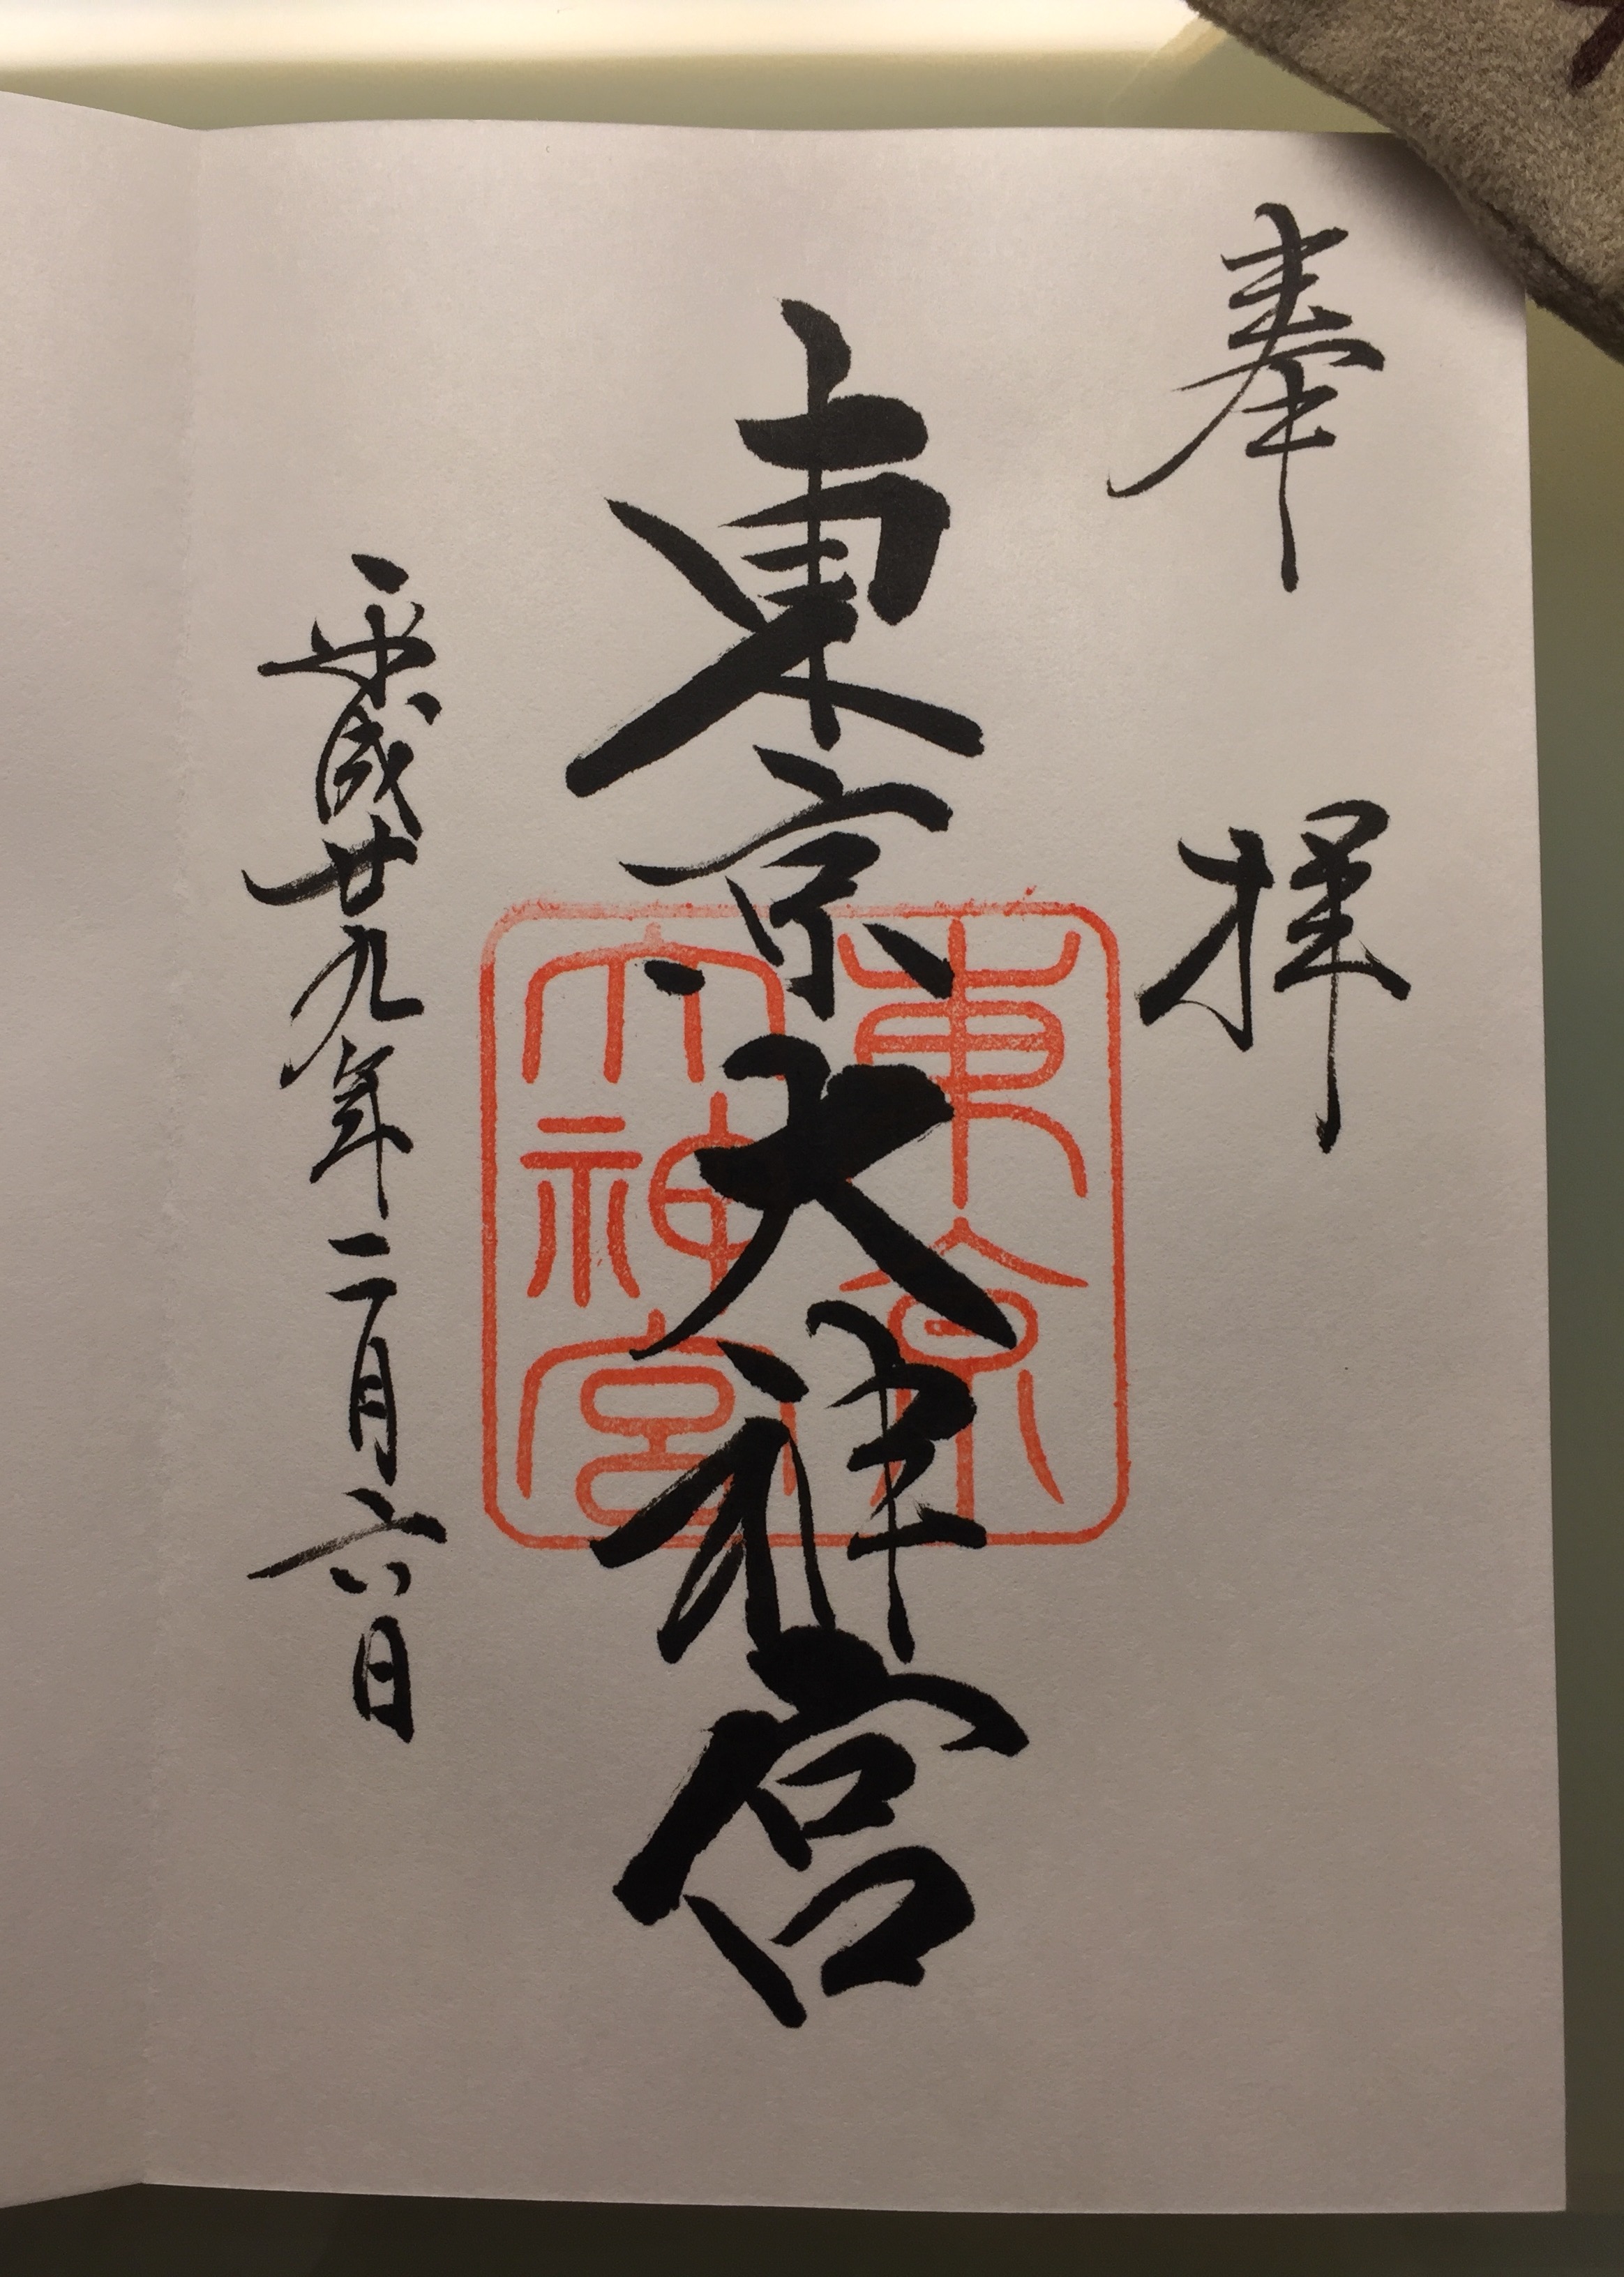 奉拝
東京大神宮
東京
大神宮
平成廿九年二月六日